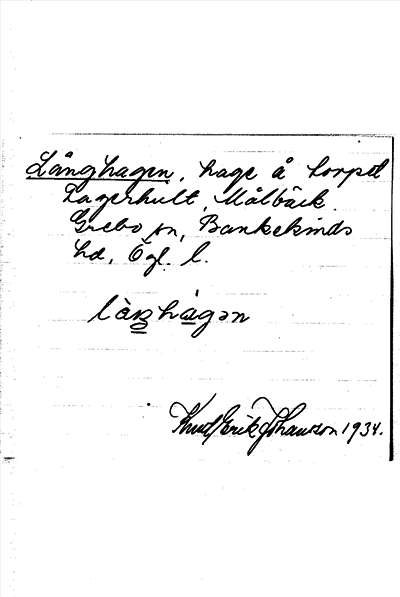 Långhagen, hage å torpet
Lagerhult, Målbäck
Grebo sn, Bankekinds
hd, Ögl. l.
làŋhágən
Knut Erik Johansson 1934.